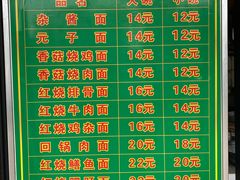 品名 大碗 小碗
杂酱面 14元 12元
元子面 14元 12元
香菇烧鸡面 14元 12元
香菇烧肉面 14元 12元
红烧排骨面 16元 14元
红烧牛肉面 16元 14元
红烧鸡杂面 16元 14元
回锅肉面 20元 18元
红烧鳝鱼面 22元 20元